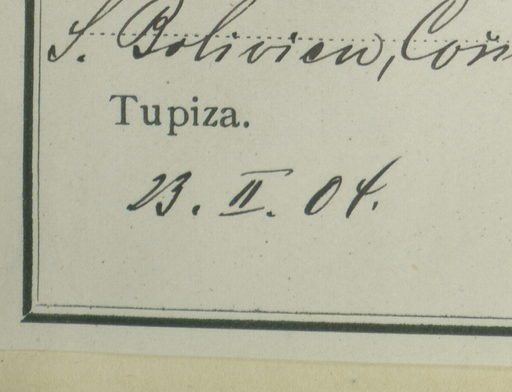 S. Bolivien,
Tupiza.
23. II. 04.